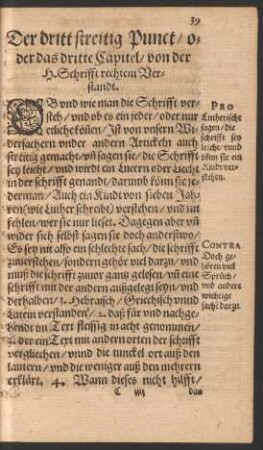 39
Der dritt streitig Punct/ o-
der das dritte Capitel/ von der
H. Schrifft rechtem Ver-
standt.
OB vnd wie man die Schrifft ver-
steh/ vnd ob es ein jeder/ oder nur
etliche köñen/ Ist von vnsern Wi-
dersachern vnder andern Artickeln auch
streitig gemacht/ vñ sagen sie/ die Schrifft
sey leicht/ vnd wirdt ein Lucern oder Liecht
in der schrifft genandt/ darumb köñ sie je-
derman/ Auch ein Kindt von sieben Jah-
ren (wie Luther schreibt) verstehen/ vnd nit
fehlen/ wer sie nur lieset. Dagegen aber vñ
wider sich selbst sagen sie doch anderstwo/
Es sey nit also ein schlechte sach/ die schrifft
zuuerstehen/ sondern gehör viel darzu/ vnd
muß die schrifft zuuor gang gelesen/ vñ eine
schrifft mit der andern außgelegt seyn/ vnd
derhalben/ 1. Hebraisch/ Griechisch vnnd
Latein verstanden/ 2. daß für vnd nachge-
hendt im Text fleissig in acht genomünen/
3. der ein Text mit andern orten der schrifft
verglichen/ vnnd die tunckel ort auß den
lautern/ vnd die weniger auß den mehrern
erklärt. 4. Wann dieses nicht hilfft/
C iiij das
PRO
Lutherische
sagen/ die
schrifft sey
leicht/ vnnd
könn sie ein
Kindt ver-
stehen.
CONTRA
Doch ge-
hören viel
Sprüch/
vnd anders
wichtige
sachẽ darzu.